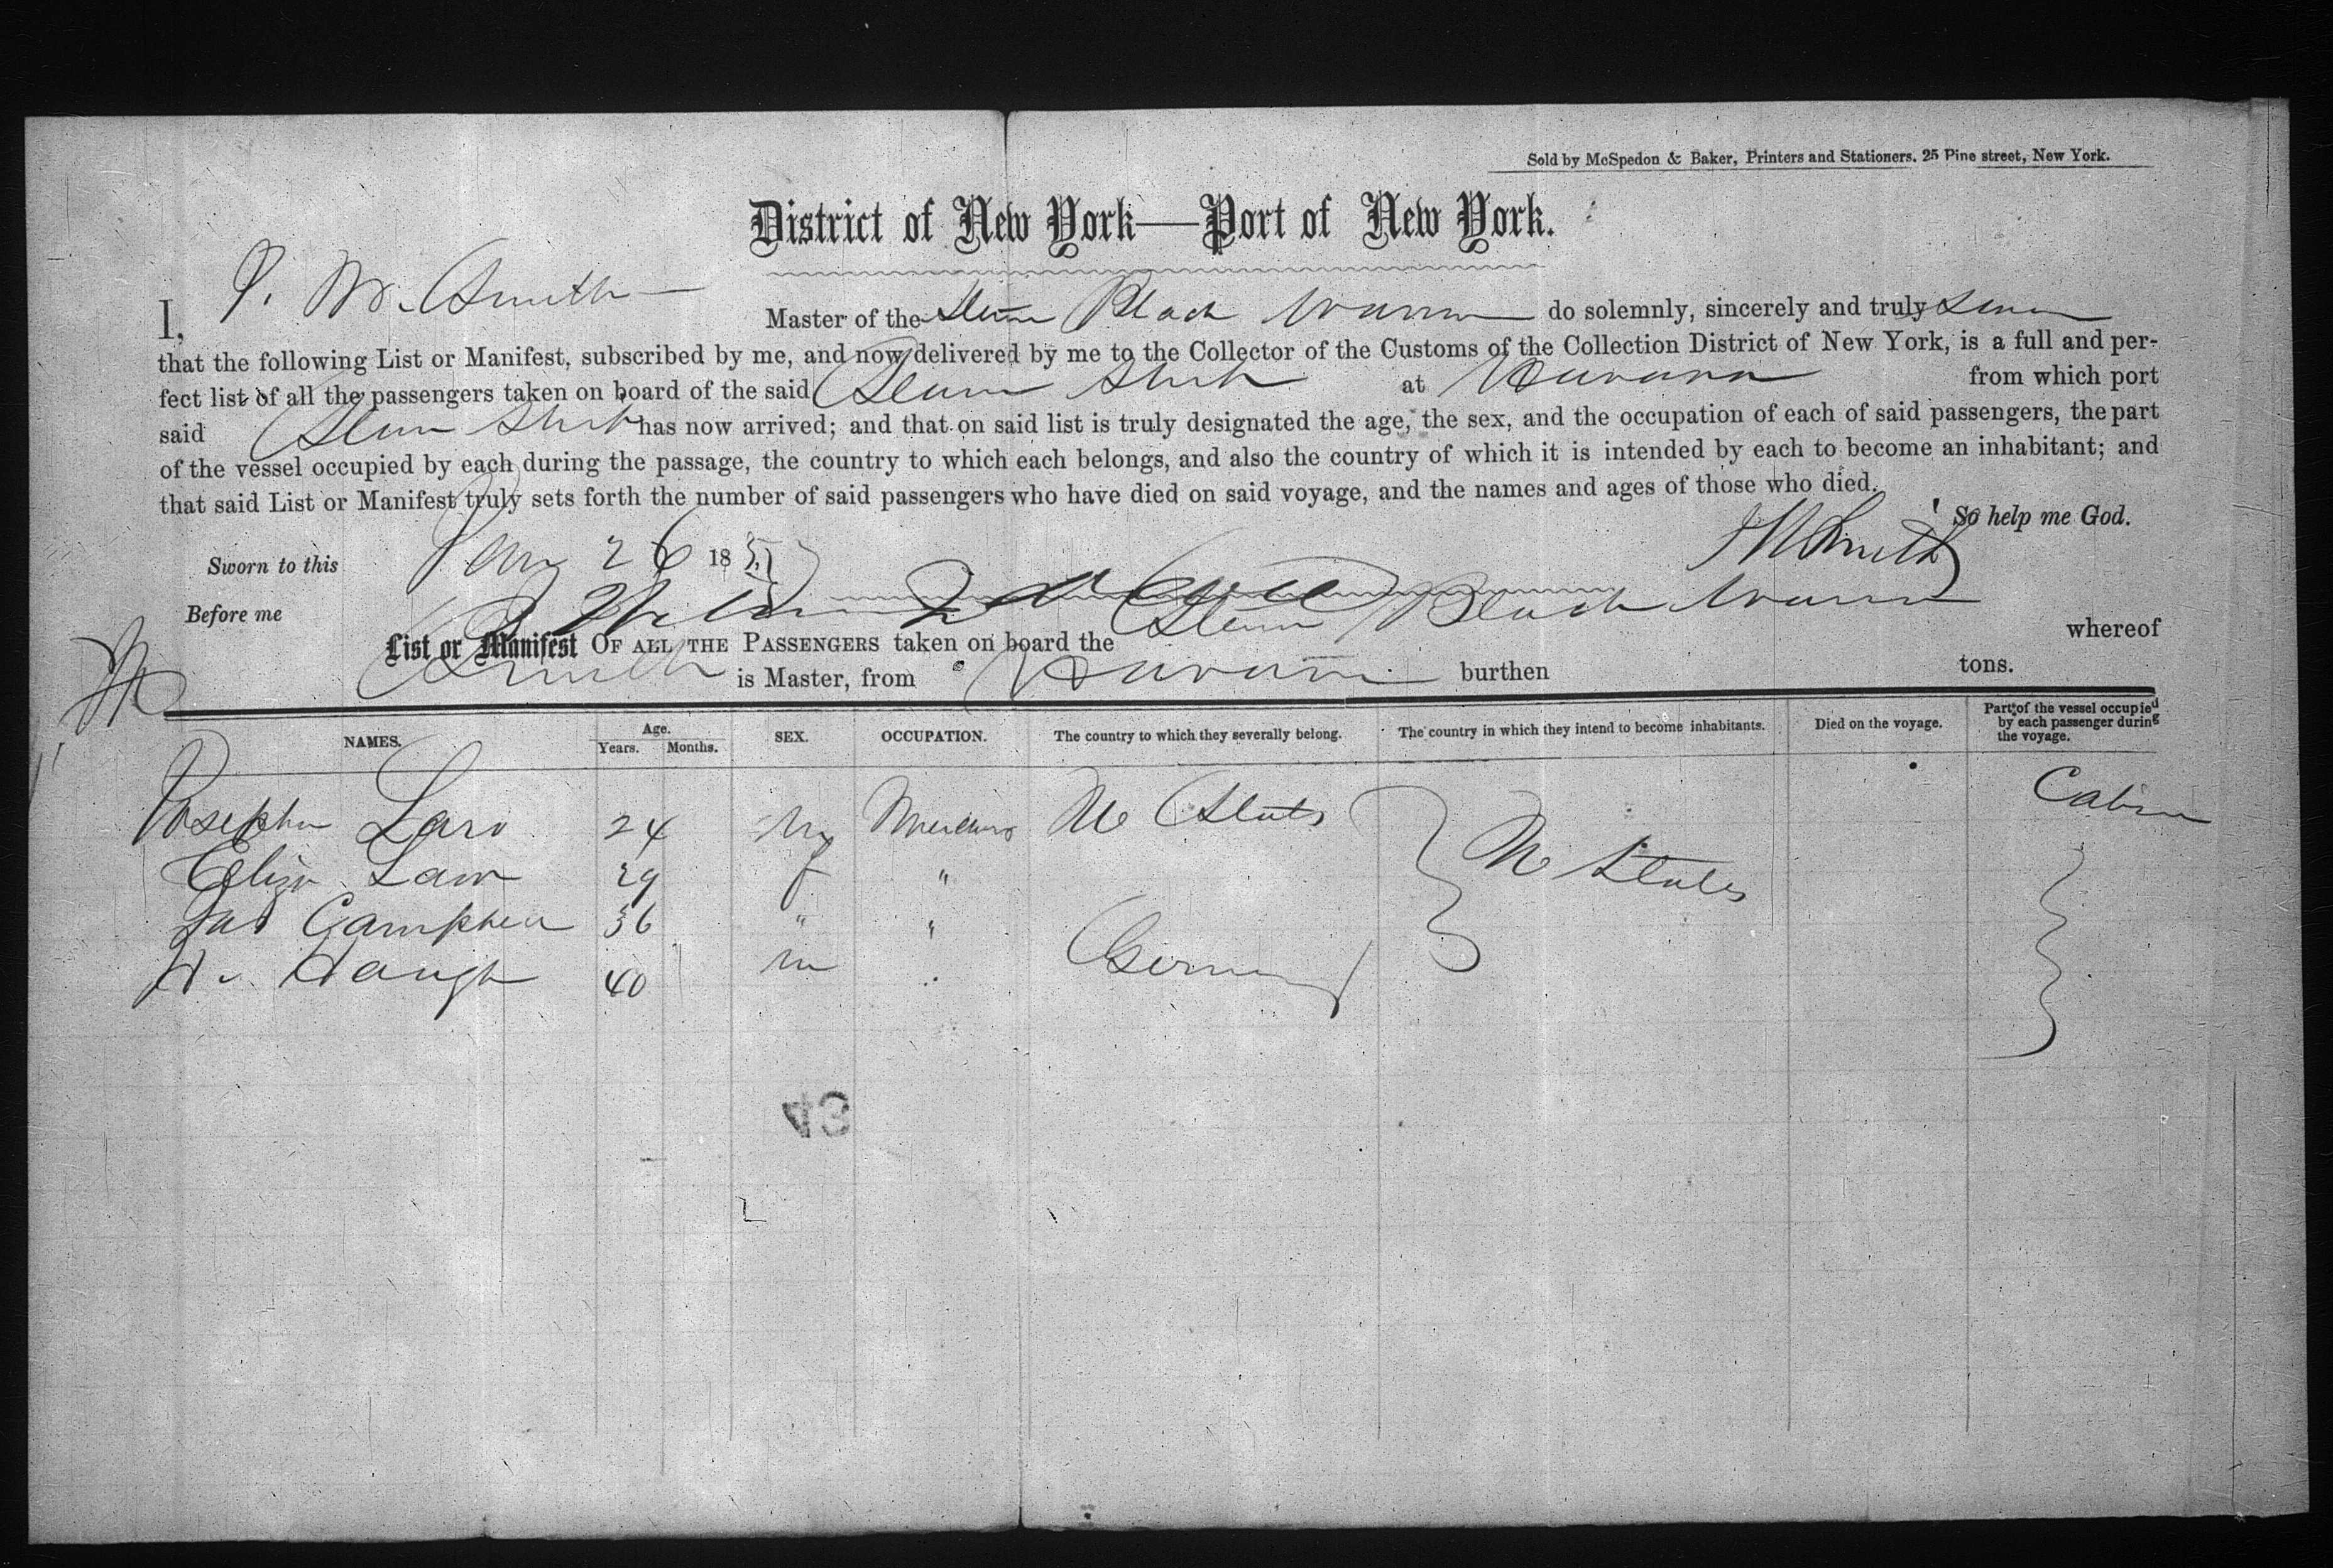 Sold by McSpedon & Baker, Printers and Stationers. 25 Pine street, New York.
District of New York—Port of New York.
I, J. W. Smith Master of the Steam Black Warrior do solemnly, sincerely and truly swear
that the following List or Manifest, subscribed by me, and now delivered by me to the Collector of the Customs of the Collection District of New York, is a full and per-
fect list of all the passengers taken on board of the said Steam Ship at Havana from which port
said Steam Ship has now arrived; and that on said list is truly designated the age, the sex, and the occupation of each of said passengers, the part
of the vessel occupied by each during the passage, the country to which each belongs, and also the country of which it is intended by each to become an inhabitant; and
that said List or Manifest truly sets forth the number of said passengers who have died on said voyage, and the names and ages of those who died.
So help me God.
Sworn to this Jan 26 185 J W Smith
Before me
List or Manifest OF ALL THE PASSENGERS taken on board the Steam Black Warrior whereof
Smith is Master, from Havana burthen tons.
NAMES. Age. Years. Months. SEX. OCCUPATION. The country to which they severally belong. The country in which they intend to become inhabitants. Died on the voyage. Part of the vessel occupied by each passenger during the voyage.
Joseph Law 24 m U States Cabin
Eliza Law 29 f " U States
Campbell 36 " "
H. Haugh 40 m Germany
43